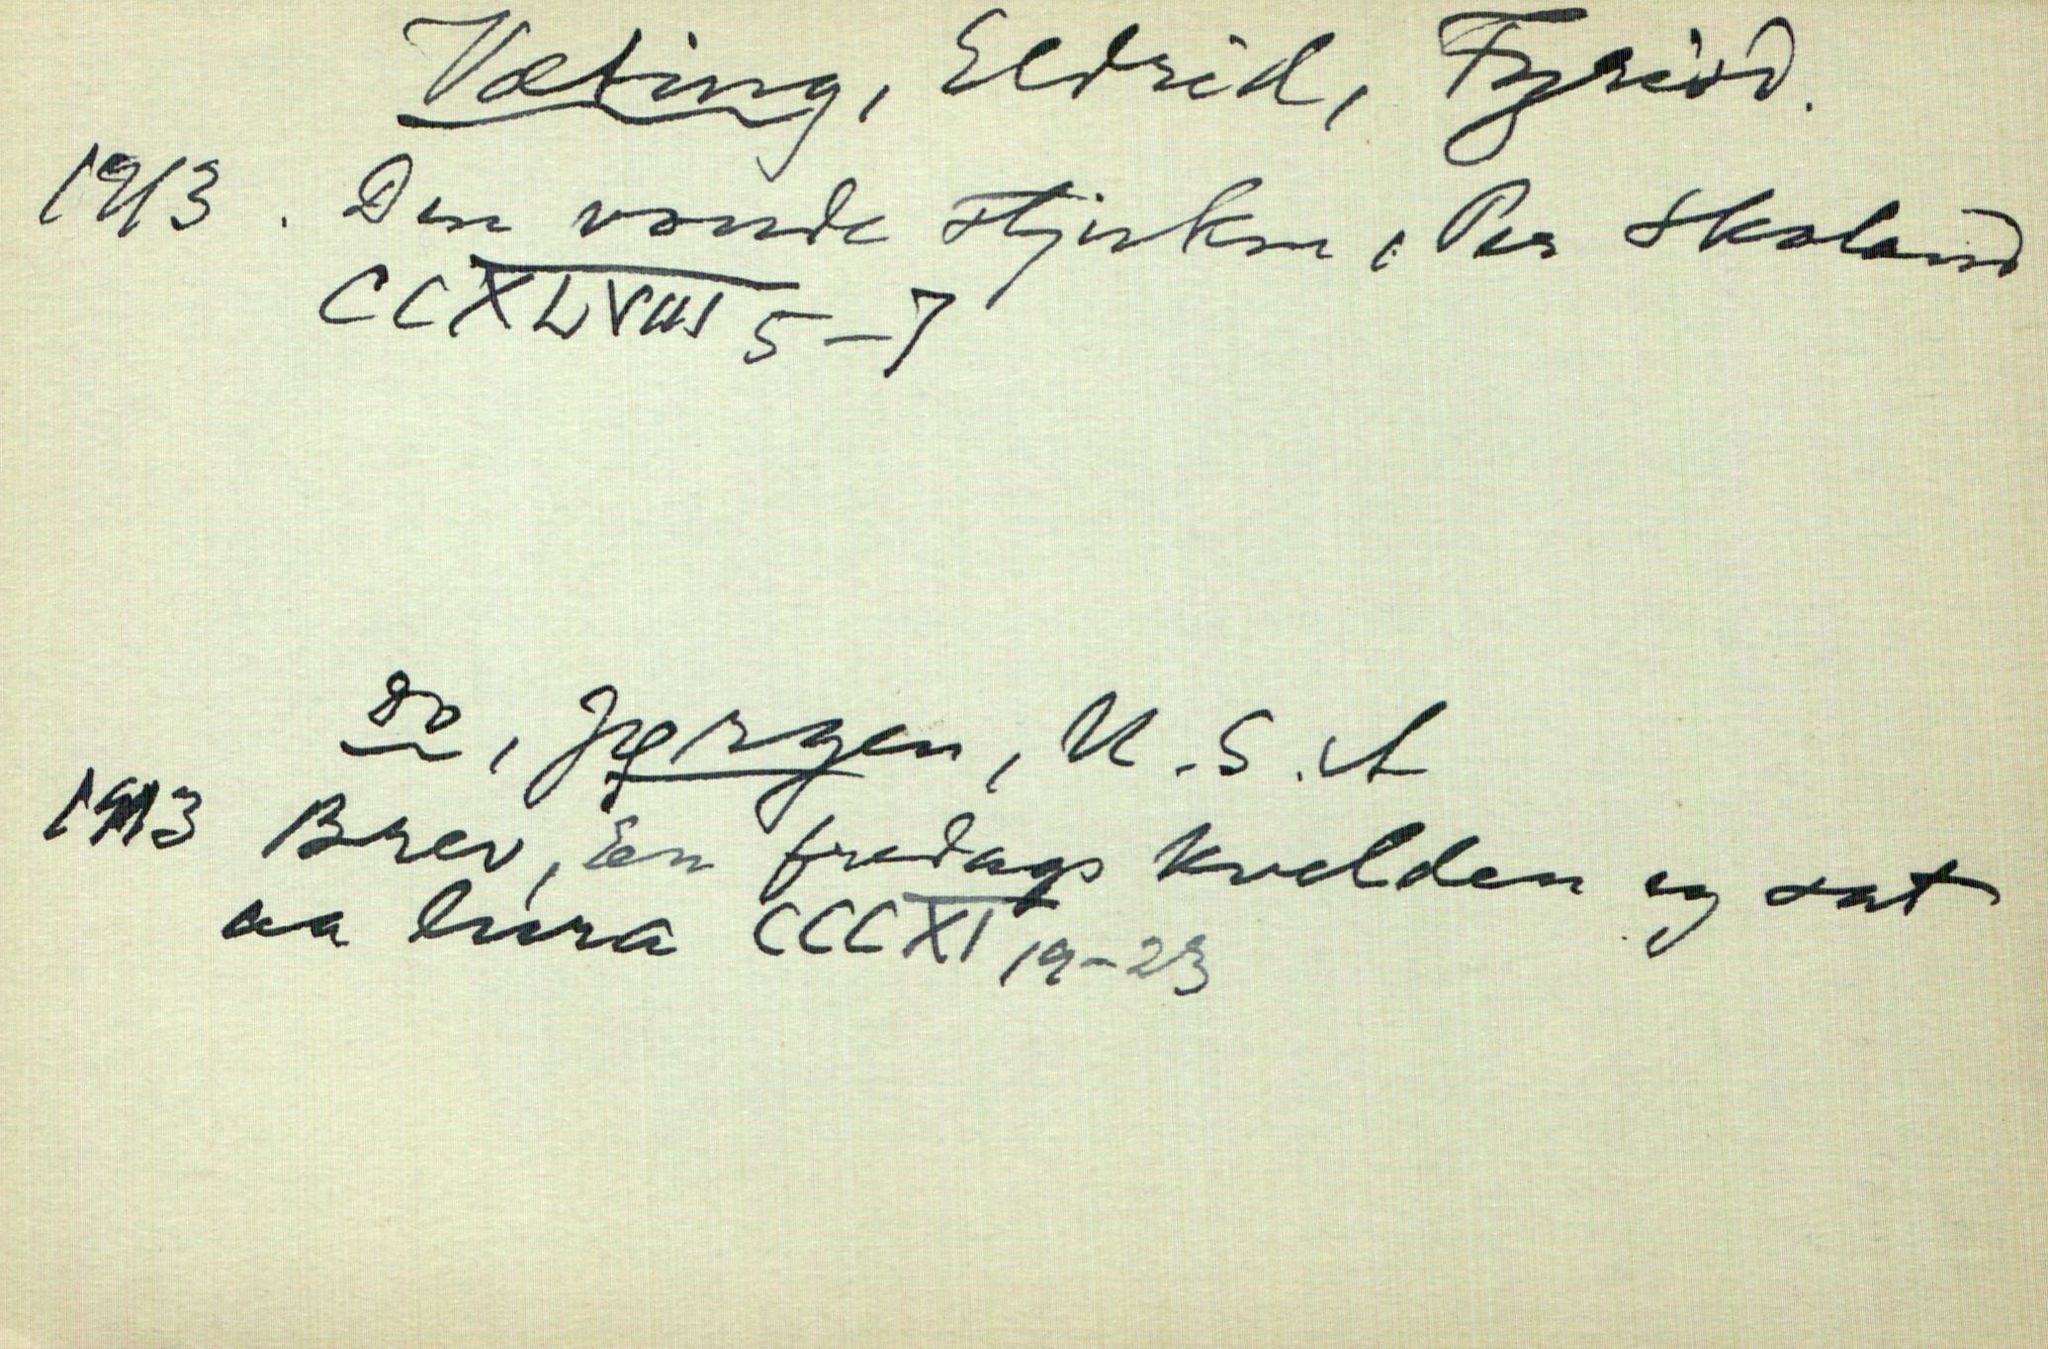 Væting, Eldrid, Fyrisd.
1913. Den vonde stjukm., Per Skoland
CCXLVIII 5-7
do, Jørgen, U.S.A
1913 Brev, Ein fredags kvelden eg sat
aa lura CCCXI 19-23